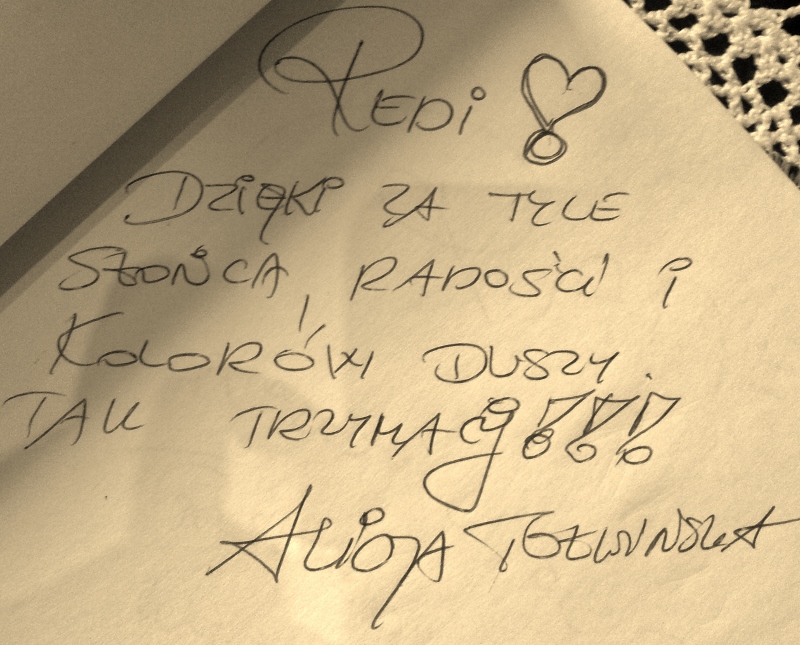 Redi
DZIĘKI ZA TYLE
SŁOŃCA, RADOŚCI I
KOLORÓW DUSZY.
TAK TRZYMAĆ!!!
ALICJA